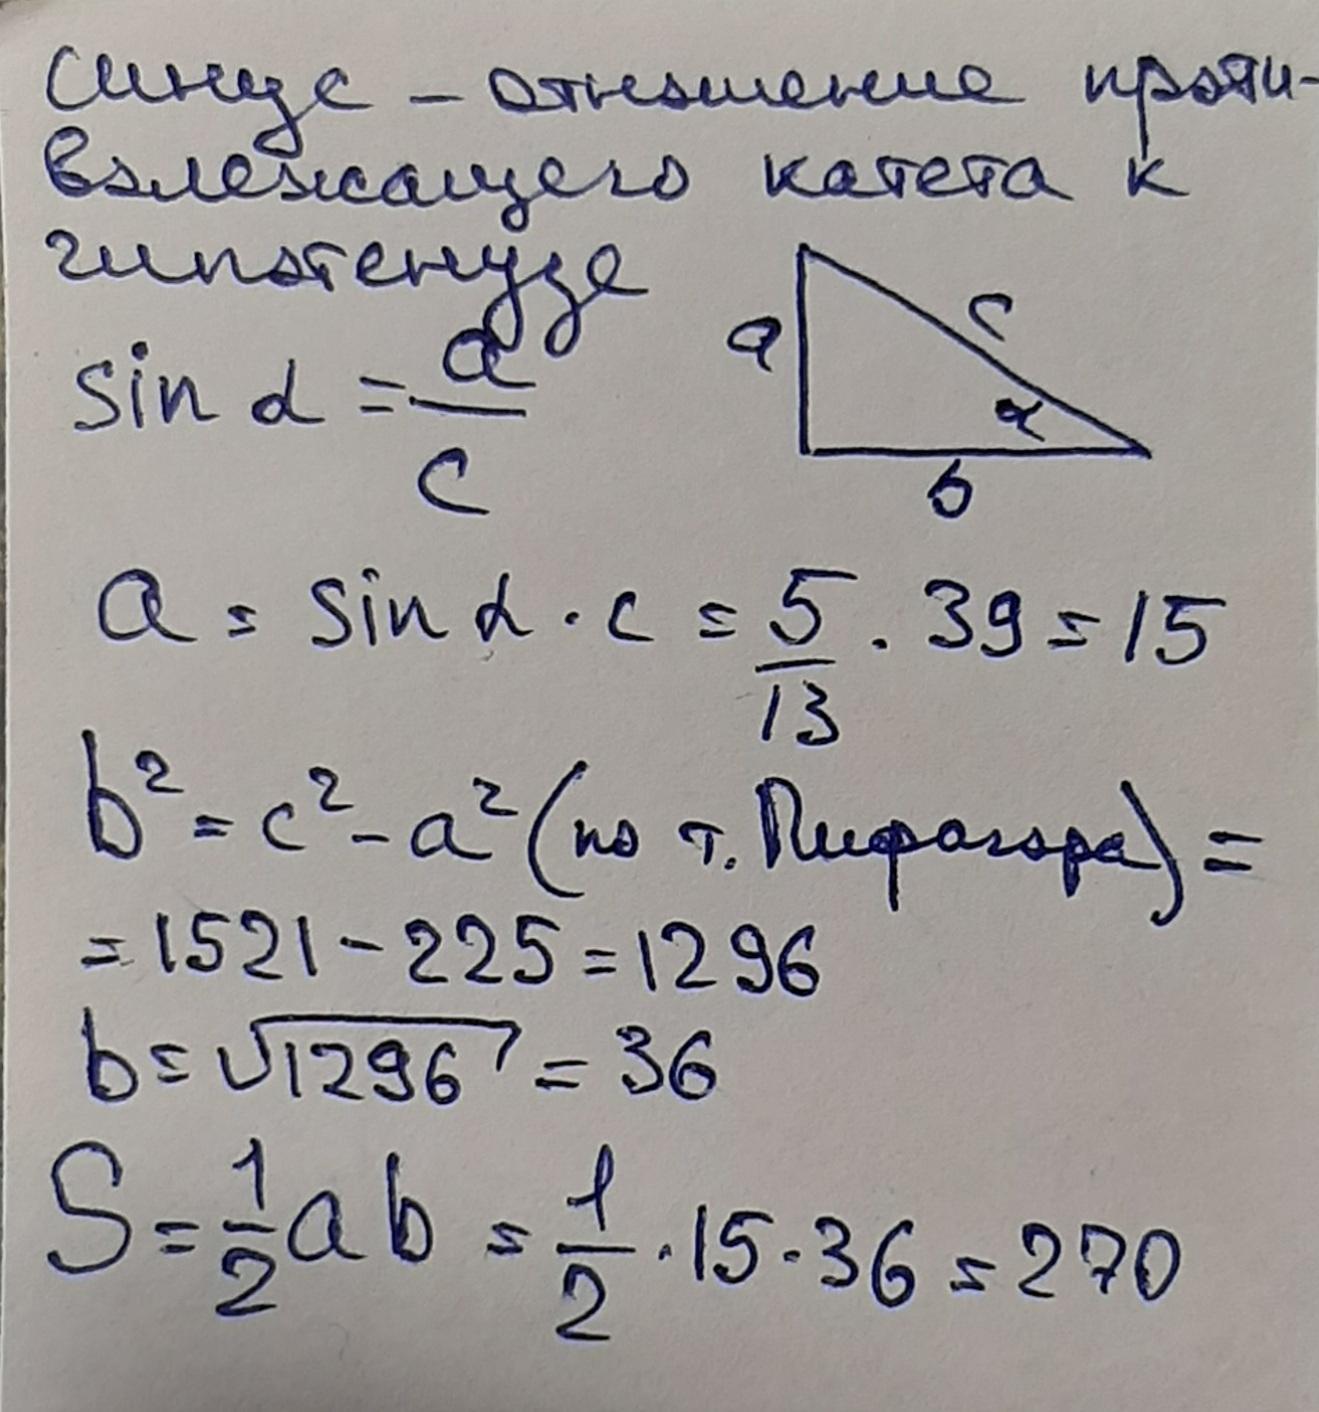 синус - отношение проти-
волежащего катета к
гипотенузе
sin α = a/c
a c α b
a = sin α · c = 5/13 · 39 = 15
b² = c² - a² (по т. Пифагора) =
= 1521 - 225 = 1296
b = √1296 = 36
S = 1/2 a b = 1/2 · 15 · 36 = 270